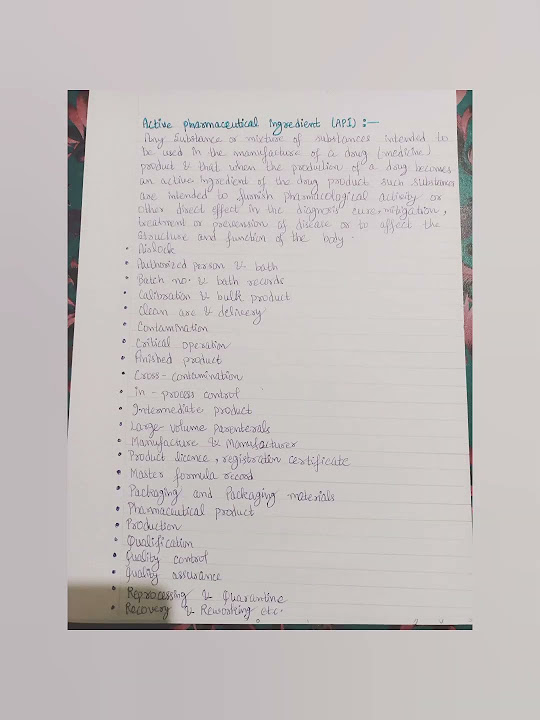 Active pharmaceutical ingredient (API) :—
Any Substance or mixture of substances intended to
be used in the manufacture of a drug (medicine)
product & that when the production of a drug becomes
an active ingredient of the drug product such substances
are intended to furnish pharmacological activity or
other direct effect in the diagnosis cure mitigation,
treatment or prevension of disease or to affect the
structure and function of the body.
• Airlock
• Authorized person & bath
• Batch no. & bath records
• Calibration & bulk product
• Clean are & delivery
• Contamination
• Critical operation
• Finished product
• Cross - contamination
• in - process control
• Intermediate product
• Large-volume parenterals
• Manufacture & Manufacturer
• Product dicence, registration certificate
• Master formula record
• Packaging and Packaging materials
• Pharmaceutical product
• Production
• Qualification
• Quality control
• Quality assurance
• Reprocessing & Quarantine
• Recovery & Reworking etc.